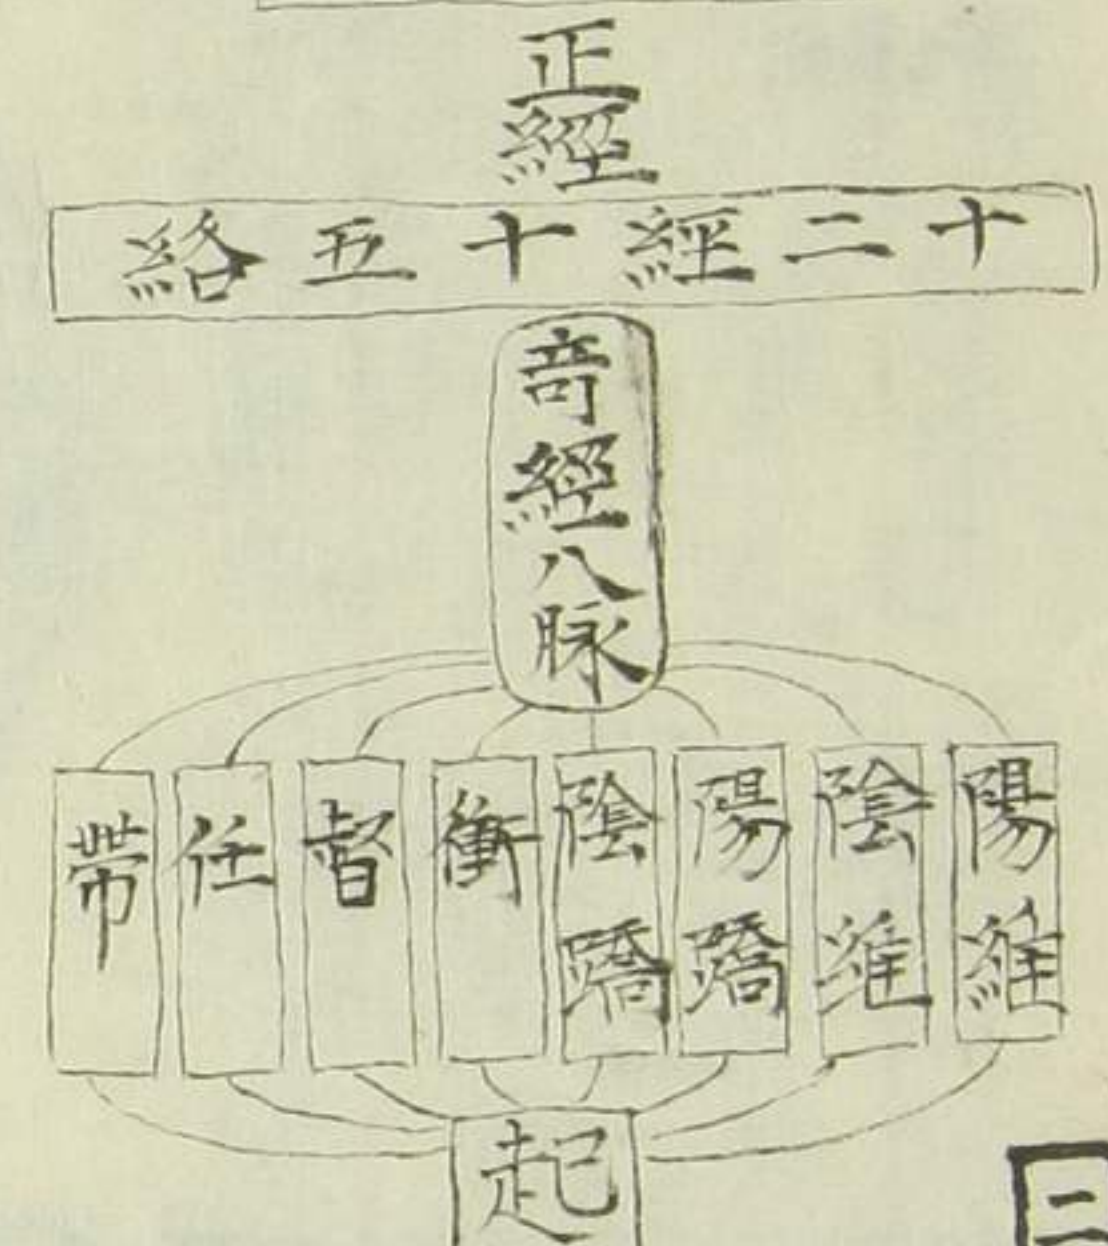 正經
十二經十五絡
奇經八脉
陽維
陰維
陽蹻
陰蹻
衝
督
任
帶
起
二